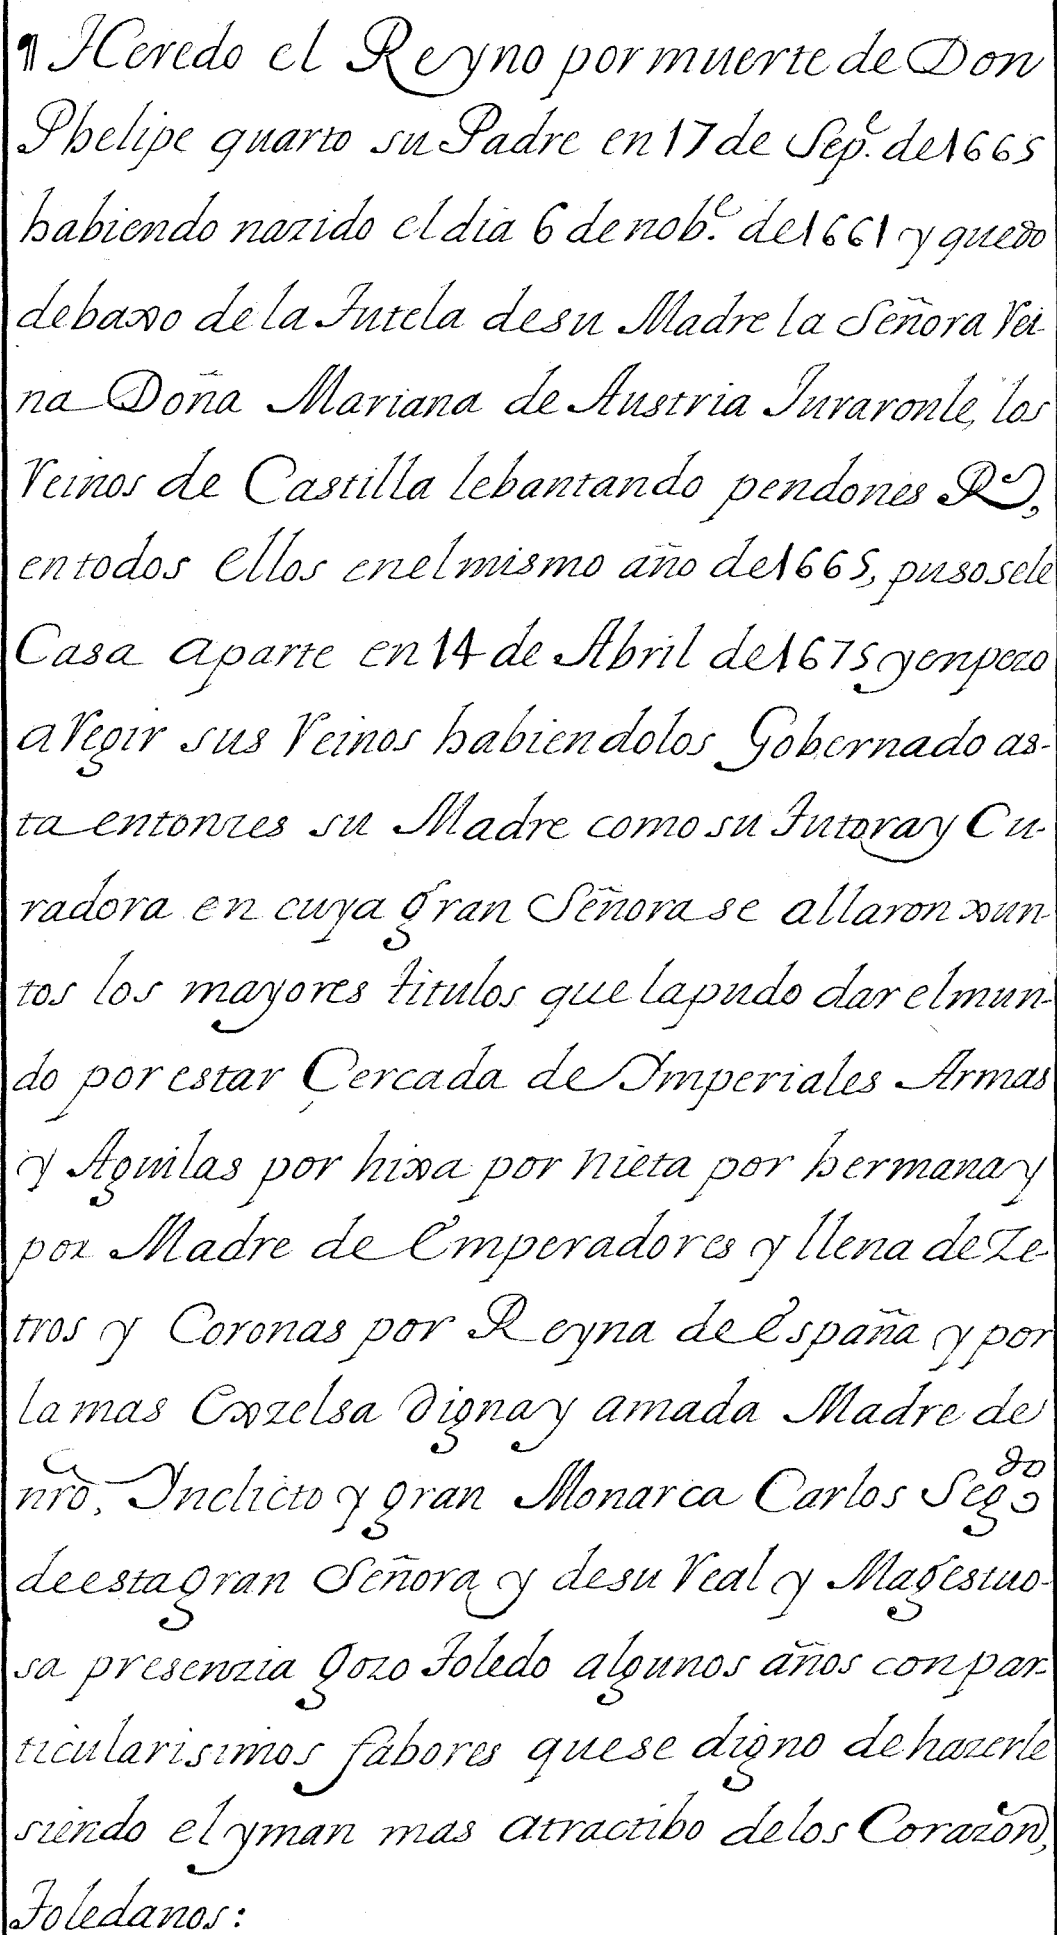 ¶ Heredo el Reyno por muerte de Don
Phelipe quarto su Padre en 17 de Sep.e de 1665
habiendo nazido el dia 6 de nob.e de 1661 y quedo
debaxo de la Tutela de su Madre la Señora Rei-
na Doña Mariana de Austria Juraronle, los
Reinos de Castilla lebantando pendones R.s,
en todos ellos en el mismo año de 1665, pusosele
Casa aparte en 14 de Abril de 1675 y enpezo
a Regir sus Reinos habiendolos Gobernado as-
ta entonzes su Madre como su Tutora y Cu-
radora en cuya gran Señora se allaron xun-
tos los mayores titulos que la pudo dar el mun-
do por estar Çercada de Ymperiales Armas
y Aguilas por hixa por nieta por hermana y
por Madre de Emperadores y llena de Ze-
tros y Coronas por Reyna de España y por
la mas Exzelsa digna y amada Madre de
nrõ, Ynclicto y gran Monarca Carlos Seg.do
de esta gran Señora y de su Real y Magestuo-
sa presenzia gozo Toledo algunos años con par-
ticularisimos fabores que se digno de hazerle
siendo el yman mas atractibo de los Corazon,
Toledanos: